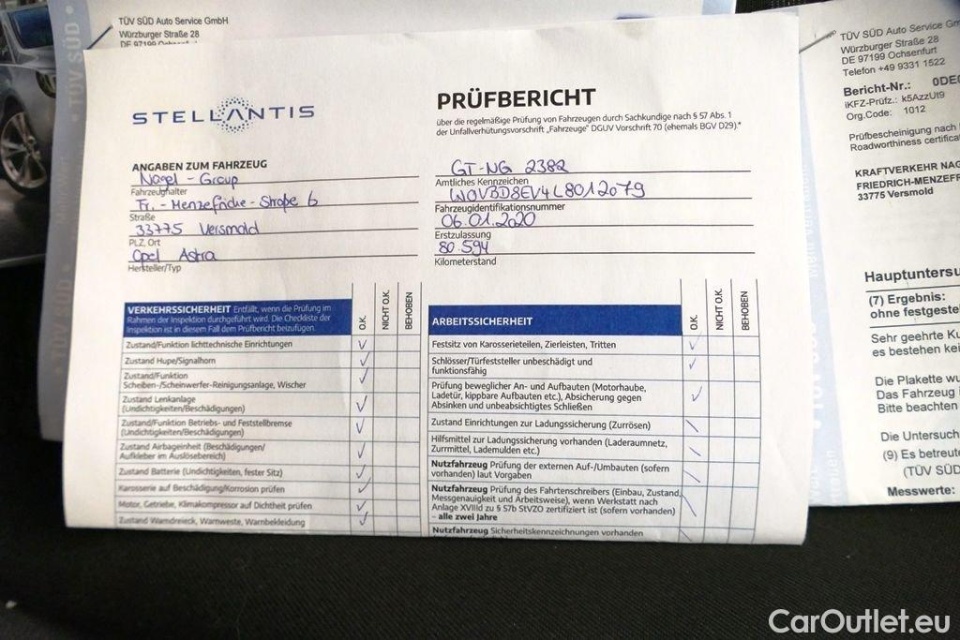 TÜV SÜD Auto Service GmbH
Würzburger Straße 28
DE 97199
TÜV SÜD
STELLANTIS
PRÜFBERICHT
über die regelmäßige Prüfung von Fahrzeugen durch Sachkundige nach § 57 Abs. 1
der Unfallverhütungsvorschrift „Fahrzeuge" DGUV Vorschrift 70 (ehemals BGV D29).*
ANGABEN ZUM FAHRZEUG
Nagel-Group
Fahrzeughalter
Fr.-Menzefricke-Straße 6
Straße
33775 Versmold
PLZ, Ort
Opel Astra
Hersteller/Typ
GT-NG 2382
Amtliches Kennzeichen
W0VBD8EV4L8012079
Fahrzeugidentifikationsnummer
06.01.2020
Erstzulassung
80.594
Kilometerstand
VERKEHRSSICHERHEIT Entfällt, wenn die Prüfung im
Rahmen der Inspektion durchgeführt wird. Die Checkliste der
Inspektion ist in diesem Fall dem Prüfbericht beizufügen.
O.K.
NICHT O.K.
BEHOBEN
Zustand/Funktion lichttechnische Einrichtungen
Zustand Hupe/Signalhorn
Zustand/Funktion
Scheiben-/Scheinwerfer-Reinigungsanlage, Wischer
Zustand Lenkanlage
(Undichtigkeiten/Beschädigungen)
Zustand/Funktion Betriebs- und Feststellbremse
(Undichtigkeiten/Beschädigungen)
Zustand Airbageinheit (Beschädigungen/
Aufkleber im Auslösebereich)
Zustand Batterie (Undichtigkeiten, fester Sitz)
Karosserie auf Beschädigung/Korrosion prüfen
Motor, Getriebe, Klimakompressor auf Dichtheit prüfen
Zustand Warndreieck, Warnweste, Warnbekleidung
ARBEITSSICHERHEIT
O.K.
NICHT O.K.
BEHOBEN
Festsitz von Karosserieteilen, Zierleisten, Tritten
Schlösser/Türfeststeller unbeschädigt und
funktionsfähig
Prüfung beweglicher An- und Aufbauten (Motorhaube,
Ladetür, kippbare Aufbauten etc.), Absicherung gegen
Absinken und unbeabsichtigtes Schließen
Zustand Einrichtungen zur Ladungssicherung (Zurrösen)
Hilfsmittel zur Ladungssicherung vorhanden (Laderaumnetz,
Zurrmittel, Lademulden etc.)
Nutzfahrzeug Prüfung der externen Auf-/Umbauten (sofern
vorhanden) laut Vorgaben
Nutzfahrzeug Prüfung des Fahrtenschreibers (Einbau, Zustand,
Messgenauigkeit und Arbeitsweise), wenn Werkstatt nach
Anlage XVIIId zu § 57b StVZO zertifiziert ist (sofern vorhanden)
- alle zwei Jahre
Nutzfahrzeug Sicherheitskennzeichnungen vorhanden
TÜV SÜD Auto Service
Würzburger Straße 28
DE 97199 Ochsenfurt
Telefon +49 9331 1522
Bericht-Nr.:
iKFZ-Prüfz.: k5AzzUt9
Org.Code: 1012
Prüfbescheinigung nach
Roadworthiness
KRAFTVERKEHR
33775 Versmold
(7) Ergebnis:
Sehr geehrte
es bestehen
Die Plakette
Das Fahrzeug
Bitte beachten
Die
(9) Es
(TÜV SÜD
Messwerte:
CarOutlet.eu